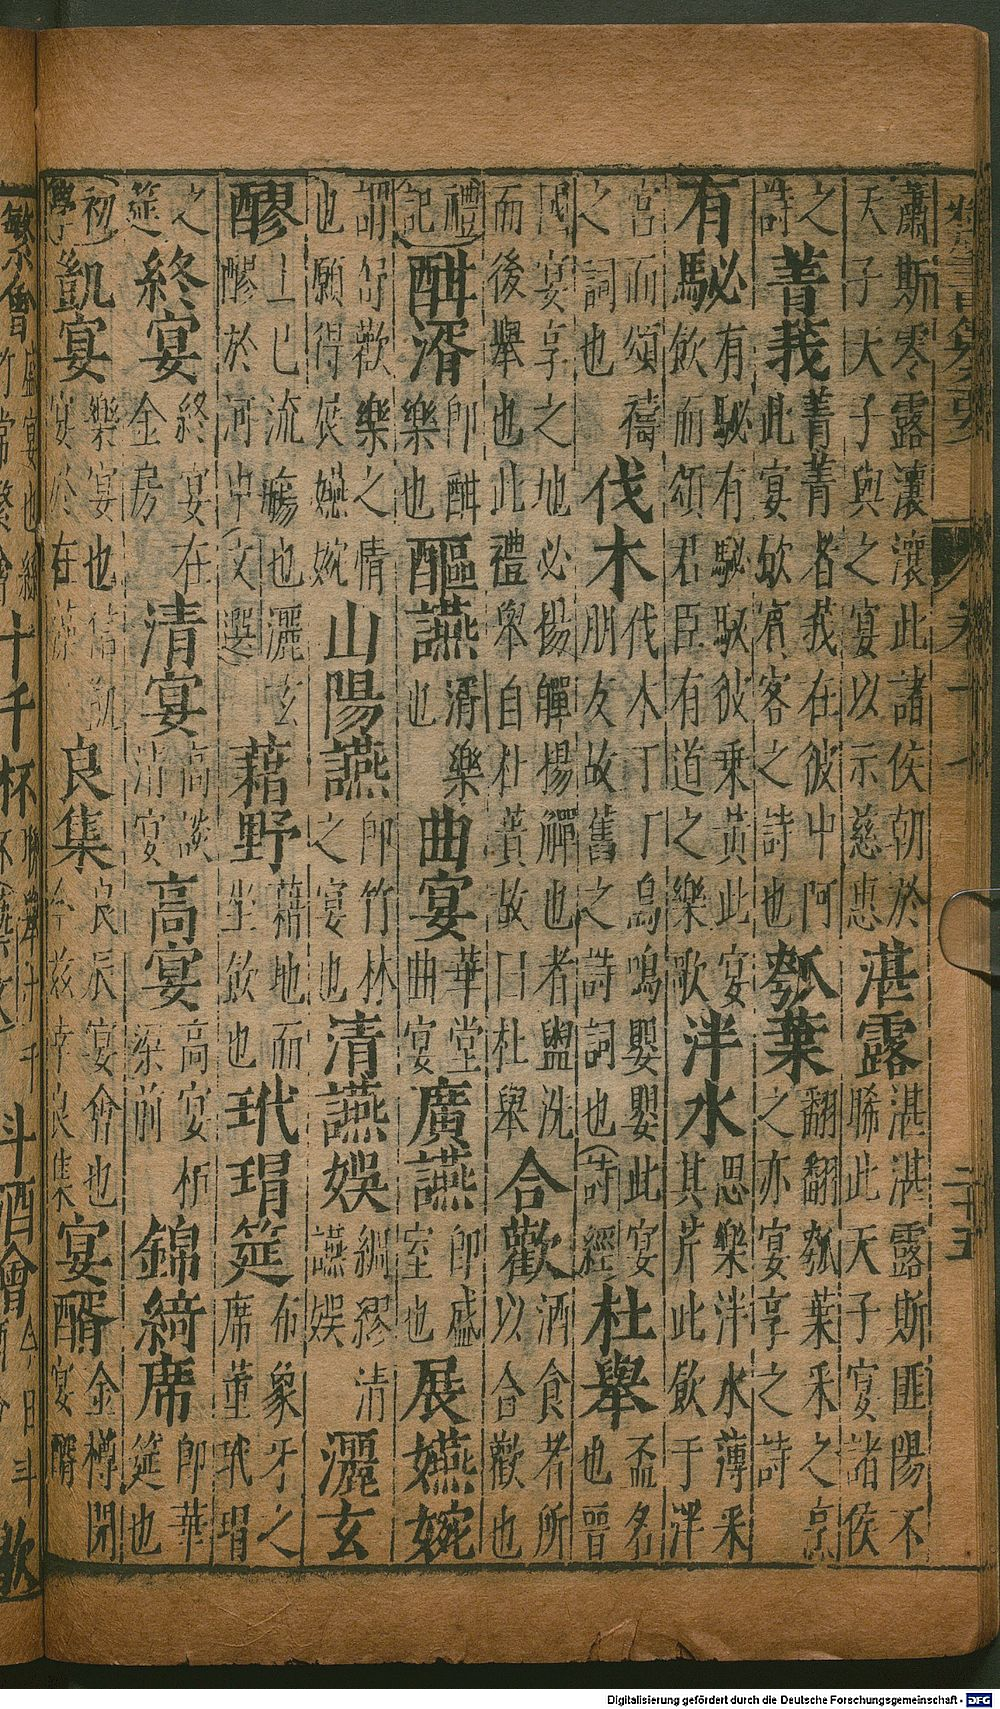 卷十七 二十五
蕭斯零露瀼瀼此諸侯朝於天子天子與之宴以示慈惠湛露湛湛露斯匪陽不晞此天子宴諸侯
之詩菁莪菁菁者莪在彼中阿此宴飲賓客之詩也瓠葉翻翻瓠葉采之亨之亦宴享之詩
有駜有駜有駜駜彼乘黃此宴飲而頌君臣有道之樂歌泮水思樂泮水薄采其芹此飲于泮
宮而頌禱之詞也伐木伐木丁丁鳥鳴嚶嚶此宴朋友故舊之詩詞也(詩經)杜舉盃名也晉
國宴享之地必揚觶揚觶也者盥洗而後舉也此禮舉自杜蕢故曰杜舉合歡酒食者所以合歡也
(禮記)酣湑即酣樂也醧讌湑樂也曲宴華堂曲宴廣讌即盛室也展嬿婉
謂舒歡樂之情也願得展嬿婉山陽讌即竹林之宴也清讌娛綢繆清讌娛灑玄
醪上巳流觴也灑玄醪於河中(文選)藉野藉地而坐飲也玳瑁筵布象牙之席薰玳瑁
之筵終宴終宴在金房清宴高談清宴高宴高宴柝梁前錦綺席即華筵也
(初學)凱宴樂宴也凱宴於在藻良集良辰宴會也今茲幸良集宴醑金樽閉宴醑
繁會 十千杯 斗酒會 今日斗 歡
Digitalisierung gefördert durch die Deutsche Forschungsgemeinschaft - DFG